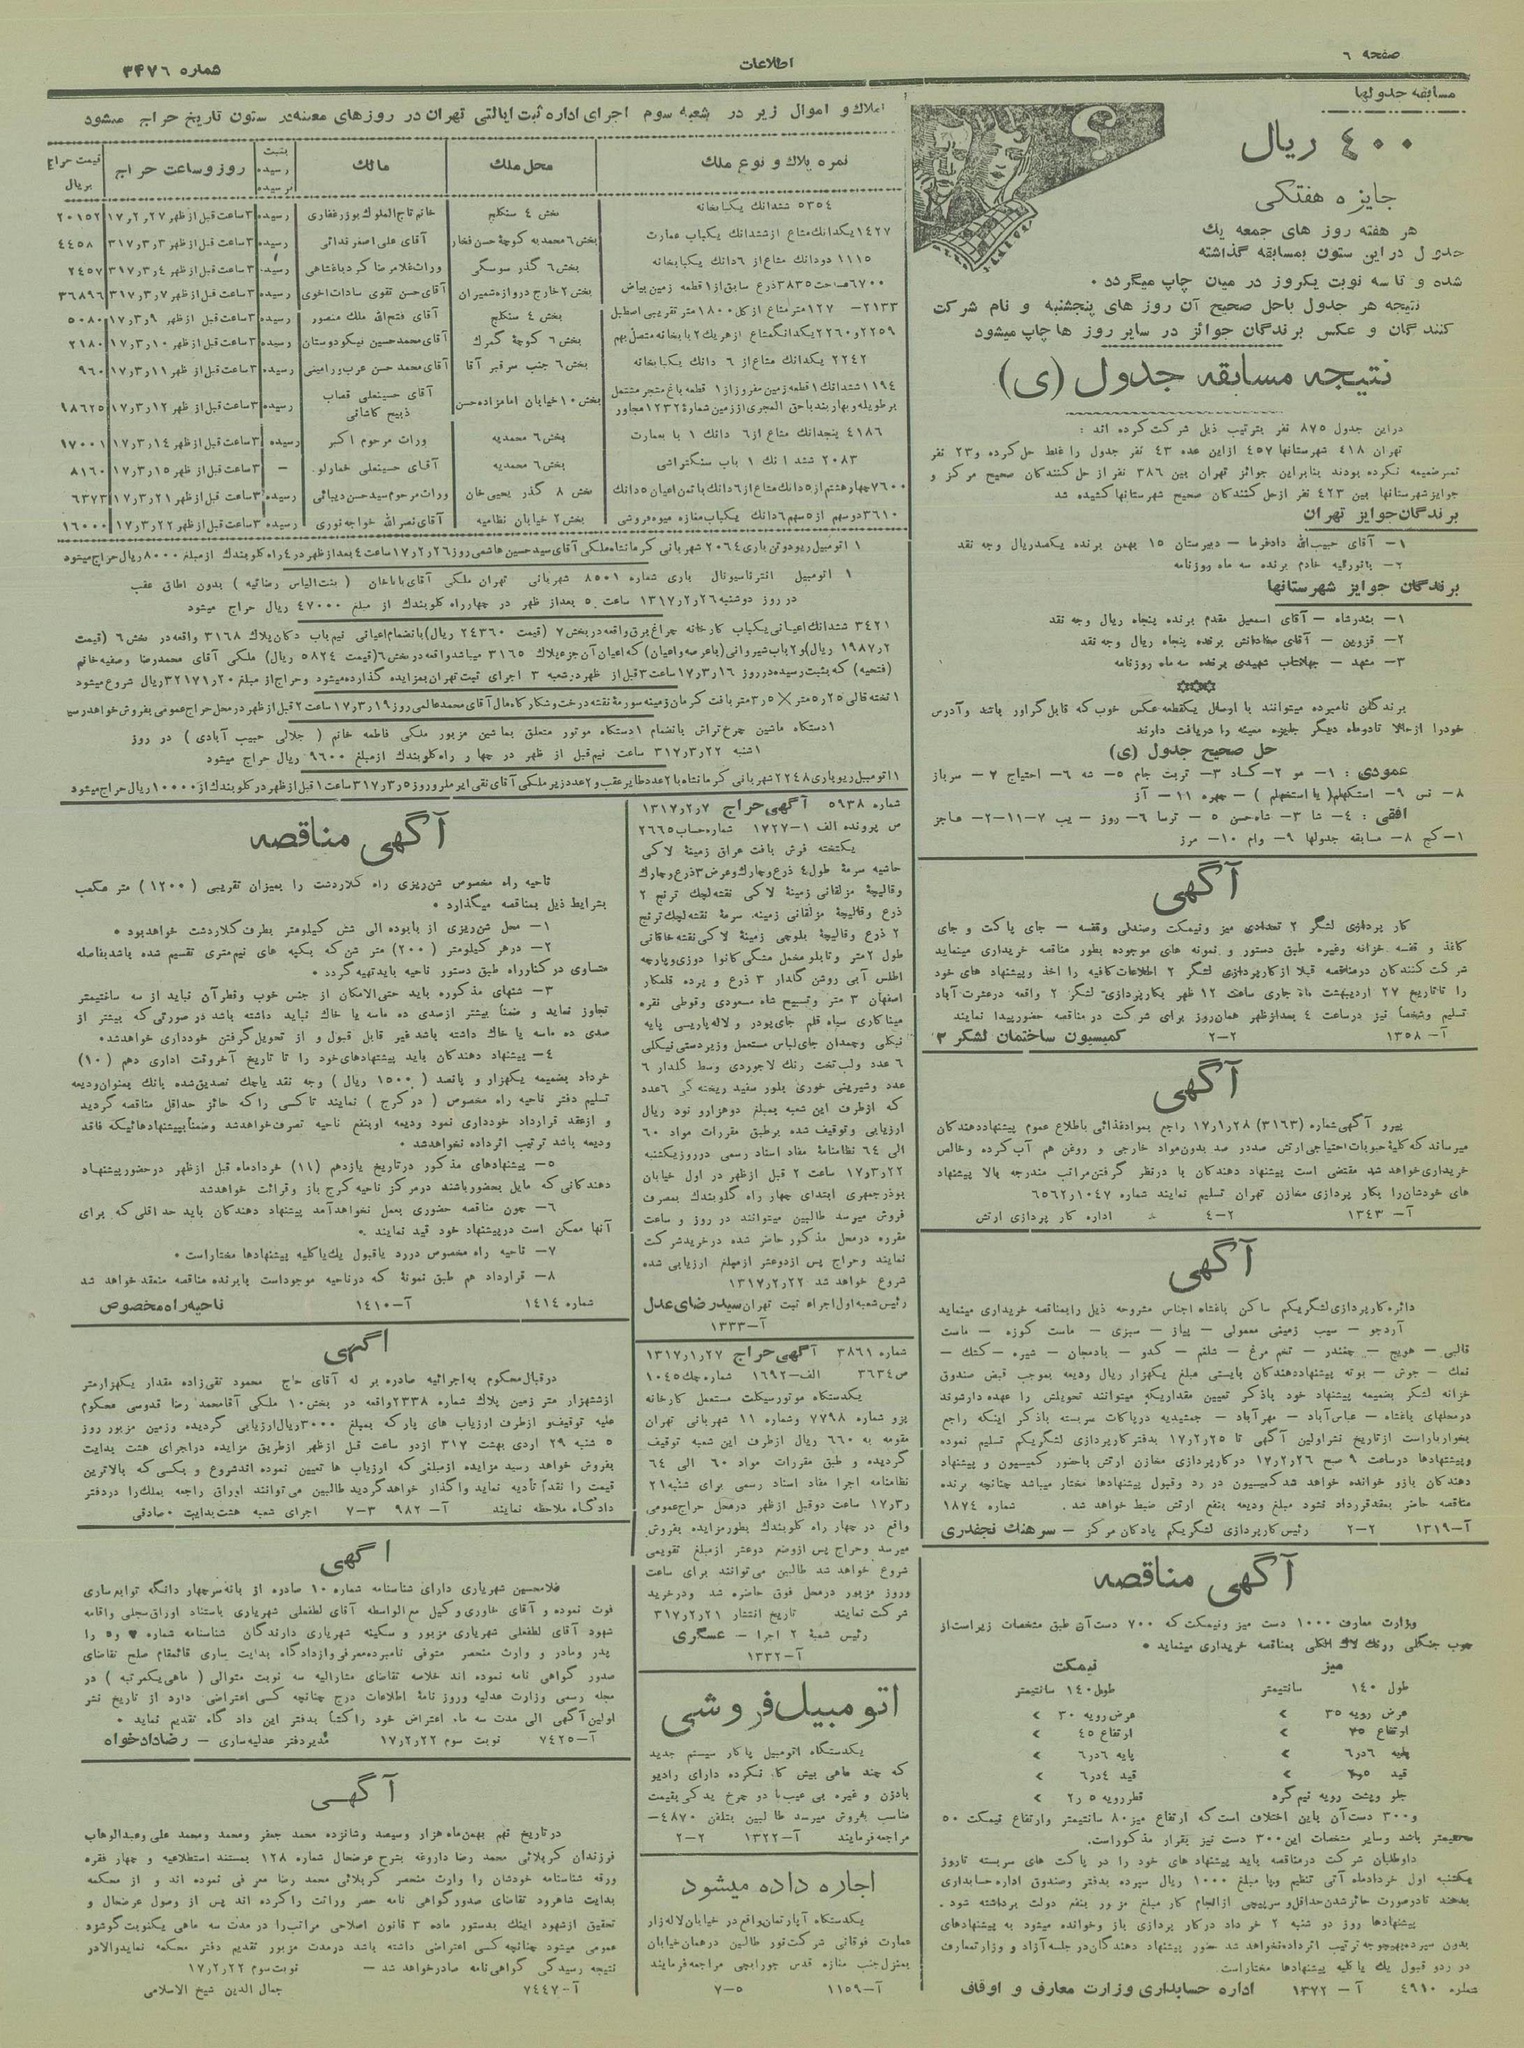 صفحه ٦
اطلاعات
شماره ۳۴۷٦
مسابقه جدولها
٤٠٠ ریال
جایزه هفتگی
هر هفته روز های جمعه یك
جدول دراین ستون بمسابقه گذاشته
شده و تا سه نوبت یکروز در میان چاپ میگردد .
نتیجه هر جدول باحل صحیح آن روز های پنجشنبه و نام شرکت
کنندگان و عکس برندگان جوائز در سایر روز ها چاپ میشود
نتیجه مسابقه جدول (ی)
دراین جدول ۸۷۵ نفر بترتیب ذیل شرکت کرده اند :
تهران ٤۱۸ شهرستانها ٤٥٧ ازاین عده ٤۳ نفر جدول را غلط حل کرده و۲۳ نفر
تمبرضمیمه نکرده بودند بنابراین جوائز تهران بین ۳۸٦ نفر از حل کنندگان صحیح مرکز و
جوایزشهرستانها بین ٤۲۳ نفر ازحل کنندگان صحیح شهرستانها کشیده شد
برندگان جوایز تهران
۱– آقای حبیب‌الله دادفرما – دبیرستان ۱۵ بهمن برنده یکصدریال وجه نقد
۲– بانو رقیه خادم برنده سه ماه روزنامه
برندگان جوایز شهرستانها
۱– بندرشاه – آقای اسمعیل مقدم برنده پنجاه ریال وجه نقد
۲– قزوین – آقای صفادانش برنده پنجاه ریال وجه نقد
۳– مشهد – جهانتاب شهیدی برنده سه ماه روزنامه
برندگان نامبرده میتوانند با ارسال یکقطعه عکس خوب که قابل گراور باشد وآدرس
خودرا ازحالا تادوماه دیگر جایزه معینه را دریافت دارند
حل صحیح جدول (ی)
عمودی : ۱– مو ۲– کساد ۳– تربت جام ۵– شه ٦– احتیاج ۷– سرباز
۸– نس ۹– استکهلم (یا استخهلم) – چهره ۱۱– آز
افقی : ٤– شا ۳– شاه‌حسن ۵ – ترسا ٦– روز – یب ۷–۱۱–۲– هاجر
۱– کج ۸– مسابقه جدولها ۹– وام ۱۰– مرز
آگهی
کار پردازی لشگر ۲ تعدادی میز ونیمکت وصندلی وقفسه – جای پاکت و جای
کاغذ و قفسه خزانه وغیره طبق دستور و نمونه های موجوده بطور مناقصه خریداری مینماید
شرکت کنندگان درمناقصه قبلا ازکارپردازی لشگر ۲ اطلاعات کافیه را اخذ وپیشنهاد های خود
را تاتاریخ ۲۷ اردیبهشت ماه جاری ساعت ۱۲ ظهر بکارپردازی لشگر ۲ واقعه درعشرت آباد
تسلیم وشخصاً نیز درساعت ٤ بعدازظهر همان‌روز برای شرکت در مناقصه حضورپیدا نمایند
آ– ۱۳۵۸ ۲–۲ کمیسیون ساختمان لشکر ۲
آگهی
پیرو آگهی شماره (۳۱٦۳) ۱۷٫۱٫۲۸ راجع بموادغذائی باطلاع عموم پیشنهاددهندگان
میرساند که کلیهٔ حبوبات احتیاجی ارتش صددر صد بدون‌مواد خارجی و روغن هم آب کرده وخالص
خریداری خواهد شد مقتضی است پیشنهاد دهندگان با درنظر گرفتن مراتب مندرجه بالا پیشنهاد
های خودشان‌را بکار پردازی مخازن تهران تسلیم نمایند شماره ٦۵٦۲٫۱۰٤۷
آ– ۱۳٤۳ ٤–۲ اداره کار پردازی ارتش
آگهی
دائره کارپردازی لشگریکم ساکن باغشاه اجناس مشروحه ذیل را بمناقصه خریداری مینماید
آردجو – سیب زمینی معمولی – پیاز – سبزی – ماست کوزه – ماست
قالبی – هویج – چغندر – تخم مرغ – شلغم – کدو – بادمجان – شیره – کشك –
نمك – جوش – بوته پیشنهاددهندگان بایستی مبلغ یکهزار ریال ودیعه بموجب قبض صندوق
خزانه لشگر بضمیمه پیشنهاد خود باذکر تعیین مقداریکه میتوانند تحویلش را عهده دارشوند
درمحلهای باغشاه – عباس‌آباد – مهرآباد – جمشیدیه درپاکات سربسته باذکر اینکه راجع
بخوارباراست از تاریخ نشراولین آگهی تا ۱۷٫۲٫۲۵ بدفترکارپردازی لشگریکم تسلیم نموده
وپیشنهادها درساعت ۹ صبح ۱۷٫۲٫۲٦ درکارپردازی مخازن ارتش باحضور کمیسیون و پیشنهاد
دهندگان بازو خوانده خواهد شدکمیسیون در رد وقبول پیشنهادها مختار میباشد چنانچه برنده
مناقصه حاضر بعقدقرارداد نشود مبلغ ودیعه بنفع ارتش ضبط خواهد شد . شماره ۱۸۷٤
آ–۱۳۱۹ ۲–۲ رئیس کارپردازی لشگریکم پادگان مرکز – سرهنك نجفدری
آگهی مناقصه
وزارت معارف ۱۰۰۰ دست میز ونیمکت که ۷۰۰ دست‌آن طبق مشخصات زیراست‌از
چوب جنگلی ورنك لاك الکلی بمناقصه خریداری مینماید .
میز نیمکت
طول ۱٤۰ سانتیمتر طول ۱٤۰ سانتیمتر
عرض رویه ۳۵ » عرض رویه ۳۰ »
ارتفاع ۷۵ » ارتفاع ٤۵ »
پایه ٦در٦ » پایه ٦در٦ »
قید » قید ٤در٦ »
جلو وپشت رویه نیم گرد قطررویه ۲٫۵ »
و۳۰۰ دست‌آن باین اختلاف است‌که ارتفاع میز۸۰ سانتیمتر وارتفاع نیمکت ۵۰
سانتیمتر باشد وسایر مشخصات این ۳۰۰ دست نیز بقرار مذکوراست.
داوطلبان شرکت درمناقصه باید پیشنهاد های خود را در پاکت های سربسته تاروز
یکشنبه اول خردادماه آتی تنظیم وبا مبلغ ۱۰۰۰ ریال سپرده بدفتر وصندوق اداره حسابداری
بدهند تادرصورت حائزشدن‌حداقل‌و سرپیچی ازانجام کار مبلغ مزبور بنفع دولت برداشته شود .
پیشنهادها روز دو شنبه ۲ خرداد درکار پردازی باز وخوانده میشود به پیشنهادهای
بدون سپرده بهیچوجه ترتیب اثرداده‌نخواهد شد حضور پیشنهاد دهندگان‌در جلسه آزاد و وزارتمعارف
در ردو قبول یك یا کلیه پیشنهادها مختاراست.
شماره ٤۹۱۰ آ– ۱۳۷۲ اداره حسابداری وزارت معارف و اوقاف
املاك و اموال زیر در شعبه سوم اجرای اداره ثبت ایالتی تهران در روزهای معینه‌در ستون تاریخ حراج میشود
نمره پلاك و نوع ملك | محل ملك | مالك | بثبت رسیده نرسیده | روزوساعت حراج | قیمت حراج بریال
۵۳۵٤ ششدانك یکبابخانه | بخش ٤ سنگلج | خانم تاج‌الملوك بوزرغفاری | رسیده | ۳ساعت قبل از ظهر ۱۷٫۲٫۲۷ | ۲۰۱۵۲
۱٤۲۷ یکدانك مشاع ازششدانك یکباب عمارت | بخش ٦ محمدیه کوچهٔ حسن فخار | آقای علی اصغر فدائی | رسیده | ۳ساعت قبل از ظهر ۳۱۷٫۳٫۳ | ٤٤۵۸
۱۱۱۵ دودانك مشاع از ٦دانك یکبابخانه | بخش ٦ گذر سوسکی | وراث غلامرضا کرد باغشاهی | رسیده | ۳ساعت قبل از ظهر ۳۱۷٫۳٫٤ | ۲٤۵۷
٦۷۰۰ مساحت ۳۸۳۵ ذرع سابق از ۱ قطعه زمین بیاض | بخش ۲ خارج دروازه شمیران | آقای حسن تقوی سادات اخوی | رسیده | ۳ساعت قبل از ظهر ۳۱۷٫۳٫۷ | ۳٦۸۹٦
۲۱۳۳– ۱۲۷ مترمشاع ازکل ۱۸۰۰ متر تقریبی اصطبل | بخش ٤ سنگلج | آقای فتح‌الله ملك منصور | رسیده | ۳ساعت قبل از ظهر ۱۷٫۳٫۹ | ۵۰۸۰
۲۲۵۹و۲۲٦۰ یکدانگ‌مشاع ازهریك ۲ بابخانه متصل بهم | بخش ٦ کوچهٔ گمرك | آقای محمدحسین نیکودوستان | رسیده | ۳ساعت قبل از ظهر ۱۷٫۳٫۱۰ | ۲۱۸۰
۲۲٤۲ یکدانك مشاع از ٦ دانك یکبابخانه | بخش ٦ جنب سرقبر آقا | آقای محمد حسن عرب ورامینی | رسیده | ۳ساعت قبل از ظهر ۱۷٫۳٫۱۱ | ۹٦۰
۱۱۹٤ ششدانك ۱ قطعه زمین مفروز از ۱ قطعه باغ مشجر مشتمل برطویله و بهاربند باحق المجری اززمین شمارهٔ ۱۲۳۲ مجاور | بخش ۱۰ خیابان امامزاده حسن | آقای حسینعلی قصاب ذبیح کاشانی | رسیده | ۳ساعت قبل از ظهر ۱۷٫۳٫۱۲ | ۱۸٦۲۵
٤۱۸٦ پنجدانك مشاع از٦ دانك ۱ با بعمارت | بخش ٦ محمدیه | وراث مرحوم اکبر | رسیده | ۳ساعت قبل از ظهر ۱۷٫۳٫۱٤ | ۱۷۰۰۱
۲۰۸۳ ششدانك ۱ باب سنگتراشی | بخش ٦ محمدیه | آقای حسینعلی خمارلو | – | ۳ساعت قبل از ظهر ۱۷٫۳٫۱۵ | ۸۱٦۰
۷٦۰۰ چهارهشتم از ۵ دانك مشاع از ٦ دانك با ثمن اعیان ۵ دانك | بخش ۸ گذر یحیی خان | وراث مرحوم سیدحسن دیبائی | رسیده | ۳ساعت قبل از ظهر ۱۷٫۳٫۲۱ | ٦۳۷۳
۳٦۱۰ دوسهم از ۵ سهم ٦ دانك یکباب مغازه میوه فروشی | بخش ۲ خیابان نظامیه | آقای نصرالله خواجه نوری | رسیده | ۳ساعت قبل از ظهر ۱۷٫۳٫۲۲ | ۱٦۰۰۰
۱ اتومبیل ریودوتن باری ۲۰٦٤ شهربانی کرمانشاه‌ملکی آقای سیدحسین هاشمی روز ۱۷٫۲٫۲٦ ساعت ٤ بعدازظهر در ٤ راه گلوبندك از مبلغ ۸۰۰۰ ریال حراج میشود
۱ اتومبیل انترناسیونال باری شماره ۸۵۰۱ شهربانی تهران ملکی آقای باباخان ( بنت‌الیاس رضائیه ) بدون اطاق عقب
در روز دوشنبه ۱۳۱۷٫۲٫۲٦ ساعت ۵ بعداز ظهر در چهارراه گلوبندك از مبلغ ٤۷۰۰۰ ریال حراج میشود
۳٤۲۱ ششدانك اعیانی یکباب کارخانه چراغ برق واقعه در بخش ۷ (قیمت ۲٤۳٦۰ ریال) بانضمام اعیانی نیم باب دکان پلاك ۳۱٦۸ واقعه در بخش ٦ (قیمت
۱۹۸۷٫۲ ریال) و ۲ باب شیروانی (باعرصه واعیان) که اعیان آن جزء پلاك ۳۱٦۵ میباشدواقعه دربخش ٦ (قیمت ۵۸۲٤ ریال) ملکی آقای محمدرضا وصفیه خانم
(فتحیه) که بثبت رسیده درروز ۱۷٫۳٫۱٦ ساعت ۳قبل از ظهر در شعبه ۳ اجرای ثبت تهران بمزایده گذارده میشود وحراج از مبلغ ۳۲۱۷۱٫۲۰ ریال شروع میشود
۱ تخته قالی ۵٫۲۵ متر × ۳٫۵ متر بافت کرمان زمینه سورمهٔ نقشه درخت وشکارگاه مال آقای محمدعالمی روز ۱۷٫۳٫۱۹ ساعت ۲ قبل ازظهر درمحل حراج عمومی بفروش خواهد رسید
۱ دستگاه ماشین چرخ تراش بانضمام ۱ دستگاه موتور متعلق بماشین مزبور ملکی فاطمه خانم ( جلالی حبیب آبادی ) در روز
۱ شنبه ۳۱۷٫۳٫۲۲ ساعت نیم قبل از ظهر در چهار راه گلوبندك ازمبلغ ۹٦۰۰ ریال حراج میشود
۱ اتومبیل ریوباری ۲۲٤۸ شهربانی کرمانشاه با ۲ عدد طایر عقب و ۲ عدد زیر ملکی آقای نقی ایرملو روز ۳۱۷٫۳٫۵ ساعت ۱ قبل ازظهر در گلوبندك از ۱۰۰۰۰ ریال حراج میشود
شماره ۵۹۳۸ آگهی حراج ۱۳۱۷٫۲٫۷
ص پرونده الف ۱–۱۷۲۷ شماره حساب ۲٦٦۵
یکتخته فرش بافت عراق زمینهٔ لاکی
حاشیه سرمهٔ طول ٤ ذرع وچارك وعرض ۳ ذرع وچارك
وقالیچهٔ مزلقانی زمینهٔ لاکی نقشه لچك ترنج ۲
ذرع وقالیچهٔ مزلقانی زمینه سرمهٔ نقشه لچك ترنج
۲ ذرع وقالیچهٔ بلوچی زمینهٔ لاکی نقشه خاقانی
طول ۲متر وتابلو مخمل مشکی کانوا دوزی وپارچه
اطلس آبی روشن گلدار ۳ ذرع و پرده قلمکار
اصفهان ۳ متر وتسبیح شاه مسعودی وقوطی نقره
میناکاری سیاه قلم جای‌پودر و لاله‌پاریسی پایه
نیکلی وچمدان جای لباس مستعمل وزیردستی نیکلی
٦ عدد ولب تخت رنك لاجوردی وسط گلدار ٦
عدد وشیرینی خوری بلور سفید ریخته گی ٦عدد
که ازطرف این شعبه بمبلغ دوهزارو نود ریال
ارزیابی وتوقیف شده برطبق مقررات مواد ٦۰
الی ٦٤ نظامنامهٔ مفاد اسناد رسمی درروزیکشنبه
۱۷٫۳٫۲۲ ساعت ۲ قبل ازظهر در اول خیابان
بوذرجمهری ابتدای چهار راه گلوبندك بمصرف
فروش میرسد طالبین میتوانند در روز و ساعت
مقرره درمحل مذکور حاضر شده درخریدشرکت
نمایند وحراج پس ازدوعشر ازمبلغ ارزیابی شده
شروع خواهد شد ۱۳۱۷٫۲٫۲۲
رئیس شعبه اول اجراء ثبت تهران سیدرضای عدل
آ–۱۳۳۳
شماره ۳۸٦۱ آگهی حراج ۱۳۱۷٫۱٫۲۷
ص ۳٦۳٤ الف–۱٦۹۲ شماره چك ۱۰٤۵
یکدستگاه موتورسیکلت مستعمل کارخانه
پزو شماره ۷۷۹۸ وشماره ۱۱ شهربانی تهران
مقومه به ٦٦۰ ریال ازطرف این شعبه توقیف
گردیده و طبق مقررات مواد ٦۰ الی ٦٤
نظامنامه اجرا مفاد اسناد رسمی برای شنبه ۲۱
۱۷٫۳ ساعت دوقبل ازظهر درمحل حراج عمومی
واقع در چهار راه گلوبندك بطورمزایده بفروش
میرسد وحراج پس ازوضع دوعشر ازمبلغ تقویمی
شروع خواهد شد طالبین می‌توانند برای ساعت
وروز مزبور درمحل فوق حاضره شد ودرخرید
شرکت نمایند تاریخ انتشار ۳۱۷٫۲٫۲۱
رئیس شعبهٔ ۲ اجرا – عسگری
آ–۱۳۳۲
اتومبیل فروشی
یکدستگاه اتومبیل پاکار سیستم جدید
که چند ماهی بیش کار نکرده دارای رادیو
بادزن و غیره بی عیب با دو چرخ یدکی بقیمت
مناسب بفروش میرسد طالبین بتلفن ٤۸۷۰–
مراجعه فرمایند آ–۱۳۲۲ ۲–۲
اجاره داده میشود
یکدستگاه آپارتمان واقع در خیابان لاله زار
عمارت فوقانی شرکت نور طالبین درهمان خیابان
بمنزل جنب مغازه قدس جورابچی مراجعه فرمایند
آ–۱۱۵۹ ۷–۵
آگهی مناقصه
ناحیه راه مخصوص شن‌ریزی راه کلاردشت را بمیزان تقریبی (۱۲۰۰) متر مکعب
بشرایط ذیل بمناقصه میگذارد .
۱– محل شن‌ریزی از بابوده الی شش کیلومتر بطرف کلاردشت خواهدبود .
۲– درهر کیلومتر (۲۰۰) متر شن‌که بکپه های نیم‌متری تقسیم شده باشد بفاصله
متساوی درکنارراه طبق دستور ناحیه بایدتهیه گردد .
۳– شنهای مذکوره باید حتی‌الامکان از جنس خوب وقطرآن نباید از سه سانتیمتر
تجاوز نماید و ضمناً بیشتر ازصدی ده ماسه یا خاك نباید داشته باشد درصورتی که بیشتر از
صدی ده ماسه یا خاك داشته باشد غیر قابل قبول و از تحویل گرفتن خودداری خواهدشد.
٤– پیشنهاد دهندگان باید پیشنهادهای خود را تا تاریخ آخروقت اداری دهم (۱۰)
خرداد بضمیمه یکهزار و پانصد (۱۵۰۰ ریال) وجه نقد یاچك تصدیق‌شده بانك بعنوان‌ودیعه
تسلیم دفتر ناحیه راه مخصوص ( در کرج ) نمایند تاکسی راکه حائز حداقل مناقصه گردید
و ازعقد قرارداد خودداری نمود ودیعه اوبنفع ناحیه تصرف‌خواهدشد وضمناً بپیشنهادهائیکه فاقد
ودیعه باشد ترتیب اثرداده نخواهدشد .
۵– پیشنهادهای مذکور درتاریخ یازدهم (۱۱) خردادماه قبل ازظهر درحضورپیشنهاد
دهندگانی که مایل بحضورباشند درمرکز ناحیه کرج باز وقرائت خواهدشد
٦– چون مناقصه حضوری بعمل نخواهدآمد پیشنهاد دهندگان باید حداقلی که برای
آنها ممکن است درپیشنهاد خود قید نمایند .
۷– ناحیه راه مخصوص دررد یاقبول یك‌یاکلیه پیشنهادها مختاراست .
۸– قرارداد هم طبق نمونهٔ که درناحیه موجوداست بابرنده مناقصه منعقد خواهد شد
شماره ۱٤۱٤ آ–۱٤۱۰ ناحیه‌راه مخصوص
آگهی
درقبال محکوم به‌اجرائیه صادره بر له آقای حاج محمود تقی‌زاده مقدار یکهزارمتر
ازششهزار متر زمین پلاك شماره ۲۳۳۸واقعه در بخش ۱۰ ملکی آقامحمد رضا قدوسی محکوم
علیه توقیف‌و ازطرف ارزیاب های پارکه بمبلغ ۳۰۰۰ریال‌ارزیابی گردیده وزمین مزبور روز
۵ شنبه ۲۹ اردی بهشت ۳۱۷ ازدو ساعت قبل ازظهر ازطریق مزایده دراجرای هشت بدایت
بفروش خواهد رسید مزایده از‌مبلغی که ارزیاب ها تعیین نموده اندشروع و بکسی که بالاترین
قیمت را نقداً تأدیه نماید واگذار خواهدگردید طالبین می توانند اوراق راجعه بملك‌را دردفتر
دادگاه ملاحظه نمایند آ– ۹۸۲ ۷–۳ اجرای شعبه هشت بدایت . صادقی
آگهی
غلامحسین شهریاری دارای شناسنامه شماره ۱۰ صادره از بانه‌سرچهار دانگه توابع‌ساری
فوت نموده و آقای خاوری وکیل مع‌الواسطه آقای لطفعلی شهریاری باستناد اوراق سجلی واقامه
شهود آقای لطفعلی شهریاری مزبور و سکینه شهریاری دارندگان شناسنامه شماره ۷ و۵ را
پدر ومادر و وارث منحصر متوفی نامبرده معرفی وازدادگاه بدایت ساری قائمقام صلح تقاضای
صدور گواهی نامه نموده اند خلاصه تقاضای مشارالیه سه نوبت متوالی (ماهی یکمرتبه) در
مجله رسمی وزارت عدلیه وروز نامهٔ اطلاعات درج چنانچه کسی اعتراضی دارد از تاریخ نشر
اولین‌آگهی الی مدت سه ماه اعتراض خود را کتباً بدفتر این داد گاه تقدیم نماید .
آ–۷٤۲۵ نوبت سوم ۱۷٫۲٫۲۲ مدیردفتر عدلیه‌ساری – رضادادخواه
آگهی
درتاریخ نهم بهمن‌ماه هزار وسیصد وشانزده محمد جعفر ومحمد ومحمد علی وعبدالوهاب
فرزندان کربلائی محمد رضا داروغه بشرح عرضحال شماره ۱۲۸ بمستند استطلاعیه و چهار فقره
ورقه شناسنامه خودشان را وارث منحصر کربلائی محمد رضا معرفی نموده اند و از محکمه
بدایت شاهرود تقاضای صدورگواهی نامه حصر وراثت راکرده اند پس از وصول عرضحال و
تحقیق ازشهود اینك بدستور ماده ۳ قانون اصلاحی مراتب‌را در‌مدت سه ماهی یکنوبت گوشزد
عمومی میشود چنانچه کسی اعتراضی داشته باشد درمدت مزبور تقدیم دفتر محکمه نمایدوالادر
نتیجه رسیدگی گواهی نامه صادرخواهد شد – نوبت سوم ۱۷٫۲٫۲۲
آ–۷٤٤۷ جمال الدین شیخ الاسلامی